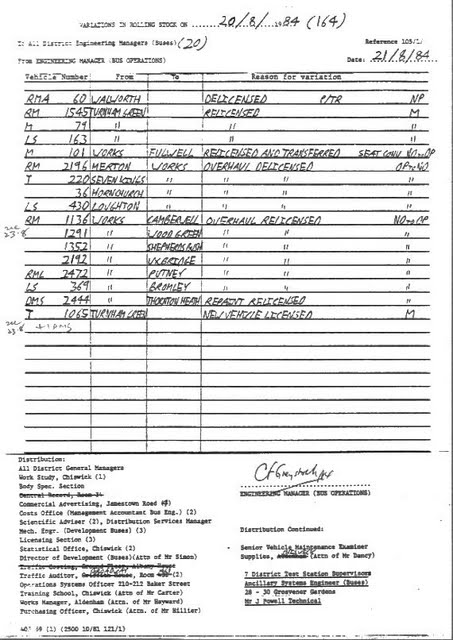 VARIATIONS IN ROLLING STOCK ON 20/8/1984 (164)
To All District Engineering Managers (Buses) (20) Reference 105/1
From ENGINEERING MANAGER (BUS OPERATIONS) Date: 21/8/84
Vehicle Number From To Reason for variation
RMA 60 WALWORTH DELICENSED P/TR NP
RM 1545 TURNHAM GREEN RELICENSED M
M 79 " " "
LS 163 " " "
M 101 WORKS FULWELL RELICENSED AND TRANSFERRED SEAT CONV NO to OP
RM 2196 MERTON WORKS OVERHAUL DELICENSED OP to NO
T 220 SEVEN KINGS " " " "
36 HORNCHURCH " " " "
LS 430 LOUGHTON " " " "
RM 1136 WORKS CAMBERWELL OVERHAUL RELICENSED NO to OP
23.8 1291 " WOOD GREEN " " "
1352 " SHEPHERDS BUSH " " "
2192 " UXBRIDGE " " "
RML 2472 " PUTNEY " " "
LS 369 " BROMLEY " " "
DMS 2444 " THORNTON HEATH REPAINT RELICENSED "
T 1065 TURNHAM GREEN NEW VEHICLE LICENSED M
23.8
Distribution:
All District General Managers
Work Study, Chiswick (1)
Body Spec. Section
Central Record, Room 34
Commercial Advertising, Jamestown Road
Costs Office (Management Accountant Bus Eng.) (2)
Scientific Adviser (2), Distribution Services Manager
Mech. Engr. (Development Buses) (3)
Licensing Section (3)
Statistical Office, Chiswick (2)
Director of Development (Buses) (Attn of Mr Simon)
Traffic Costing, Ground Floor, Albany House
Traffic Auditor, Griffith House, Room (2)
Operations Systems Officer 210-212 Baker Street
Training School, Chiswick (Attn of Mr Carter)
Works Manager, Aldenham (Attn. of Mr Hayward)
Purchasing Officer, Chiswick (Attn. of Mr Hillier)
ENGINEERING MANAGER (BUS OPERATIONS)
Distribution Continued:
Senior Vehicle Maintenance Examiner
Supplies, Aldenham (Attn of Mr Dancy)
7 District Test Station Supervisors
Ancillary Systems Engineer (Buses)
28 - 30 Grosvenor Gardens
Mr J Powell Technical
69 (1) (2500 10/81 121/1)